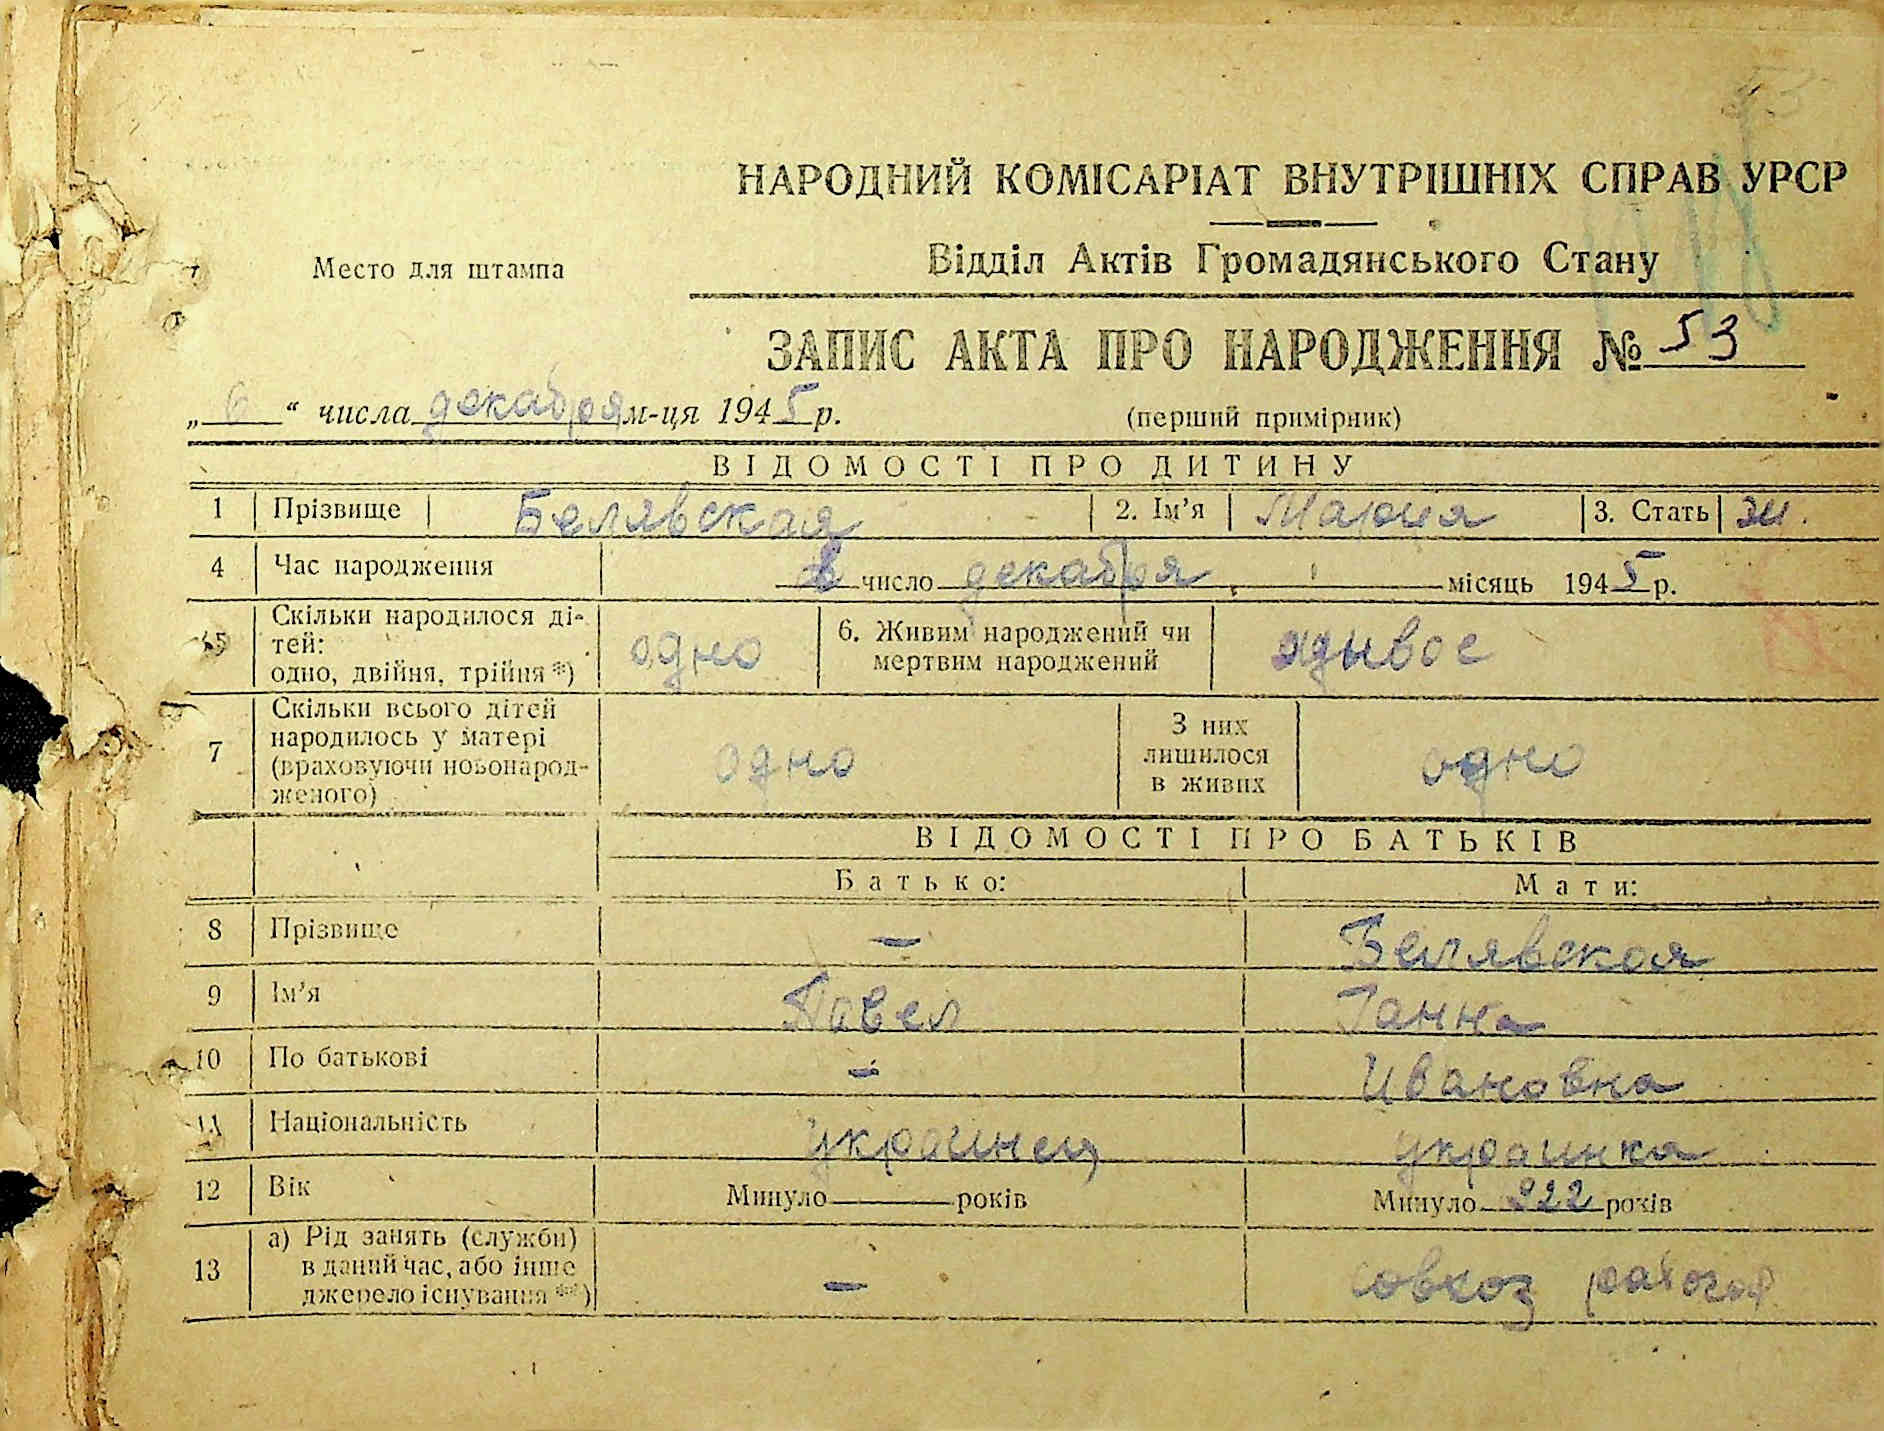 НАРОДНИЙ КОМІСАРІАТ ВНУТРІШНІХ СПРАВ УРСР
Место для штампа
Відділ Актів Громадянського Стану
ЗАПИС АКТА ПРО НАРОДЖЕННЯ № 53
„ 6 “ числа декабря м-ця 1945 р.
(перший примірник)
ВІДОМОСТІ ПРО ДИТИНУ
1 Прізвище Белявская 2. Ім’я Мария 3. Стать ж.
4 Час народження число декабря місяць 1945 р.
5 Скільки народилося ді-
тей:
одно, двійня, трійня *) одно 6. Живим народжений чи
мертвим народжений живое
7 Скільки всього дітей
народилось у матері
(враховуючи новонарод-
женого) одно З них
лишилося
в живих одно
ВІДОМОСТІ ПРО БАТЬКІВ
Батько: Мати:
8 Прізвище — Белявская
9 Ім’я Павел Ганна
10 По батькові — Ивановна
11 Національність украинец украинка
12 Вік Минуло років Минуло 22 років
13 а) Рід занять (служби)
в даний час, або інше
джерело існування **) — совхоз